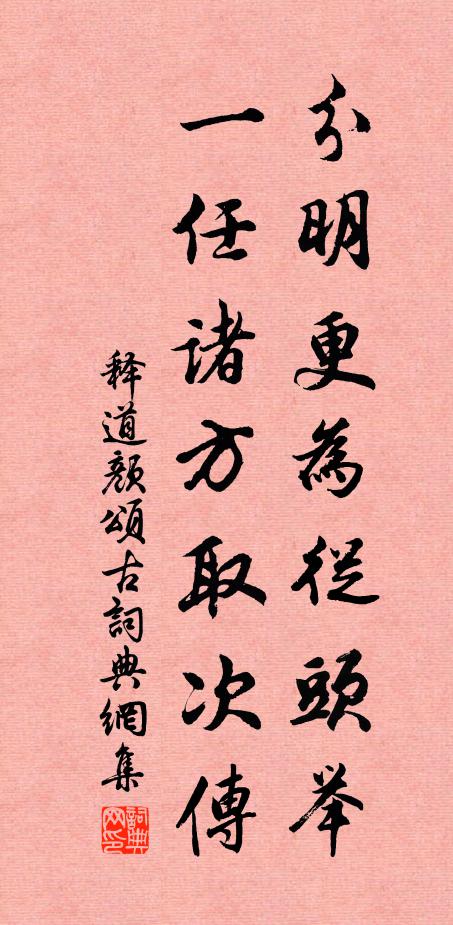 分明更為從頭举
一任诸方取次傳
释道颜頌古詞典網集
詞典网印